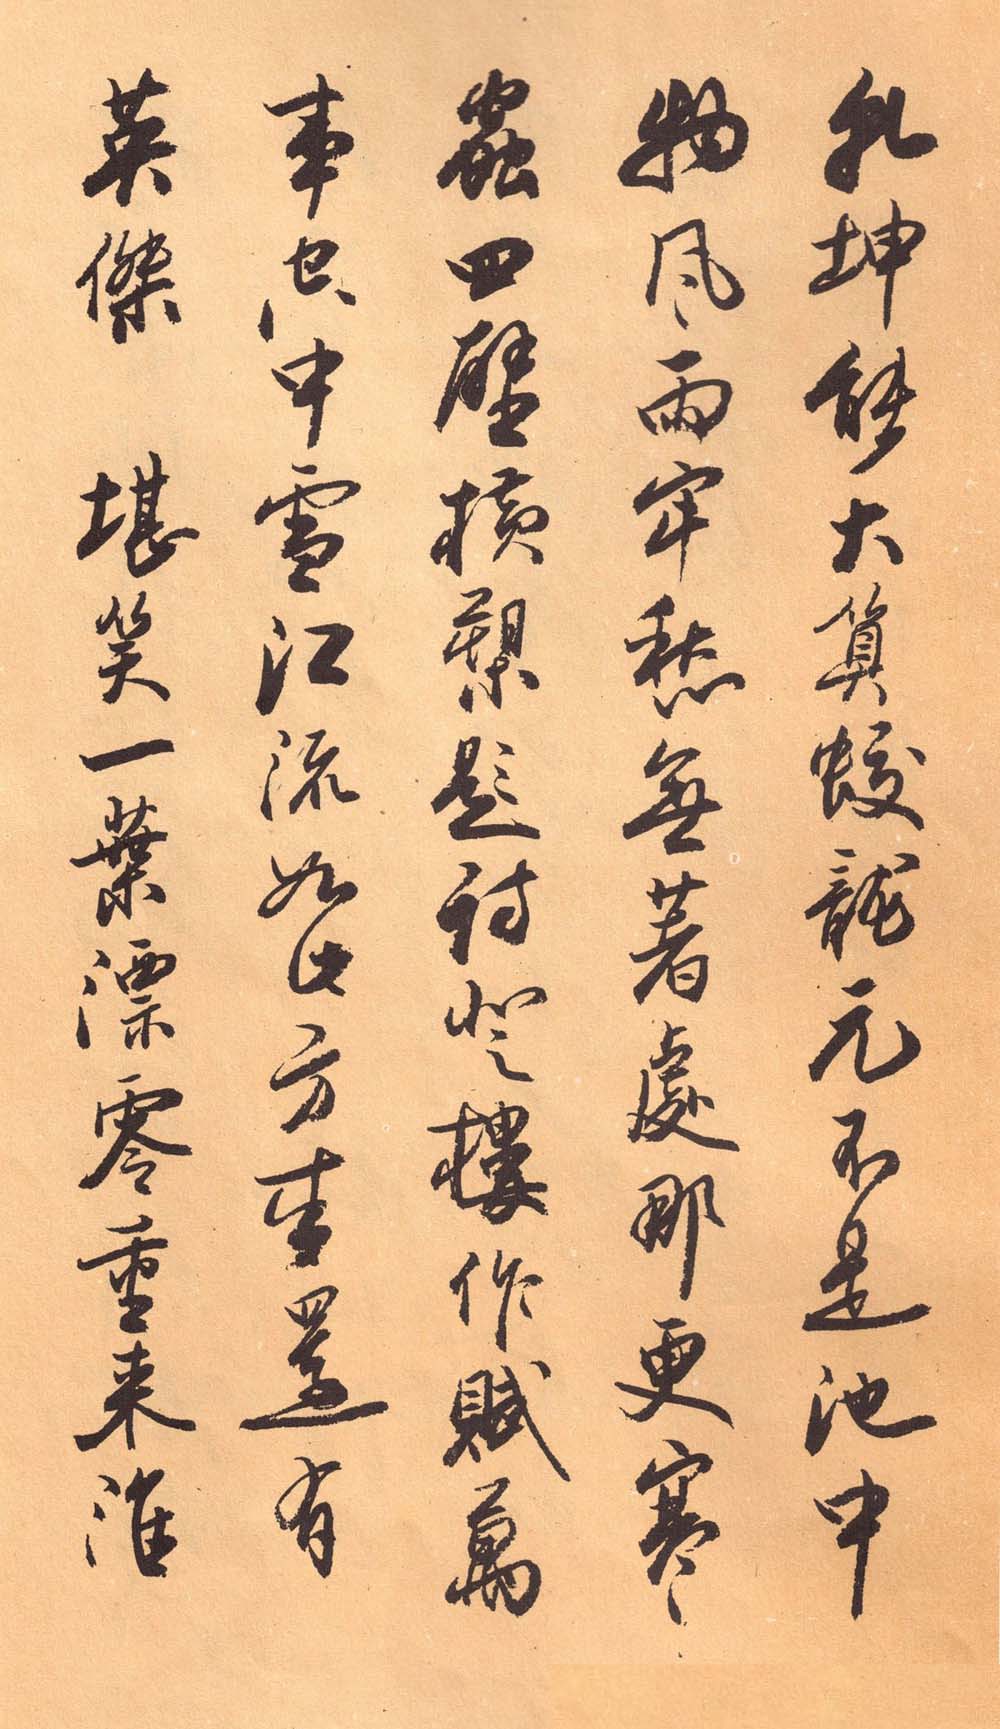 乾坤能大算蛟龍元不是池中
物風雨牢愁無著處那更寒
蟲四壁横槊題詩登樓作賦萬
事空中雪江流如此方来還有
英傑 堪笑一葉漂零重来淮